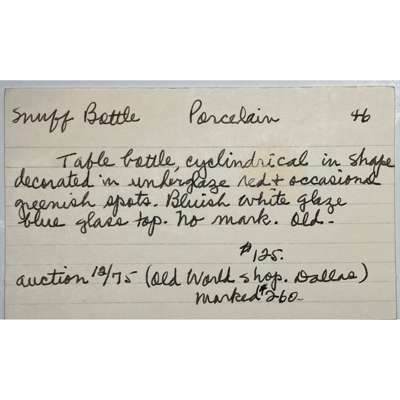 Snuff Bottle Porcelain 46
Table bottle, cyclindrical in shape
decorated in underglaze red + occasional
greenish spots. Bluish white glaze
blue glass top. No mark. Old.
$125.
auction 12/75 (Old World Shop. Dallas)
marked $260-